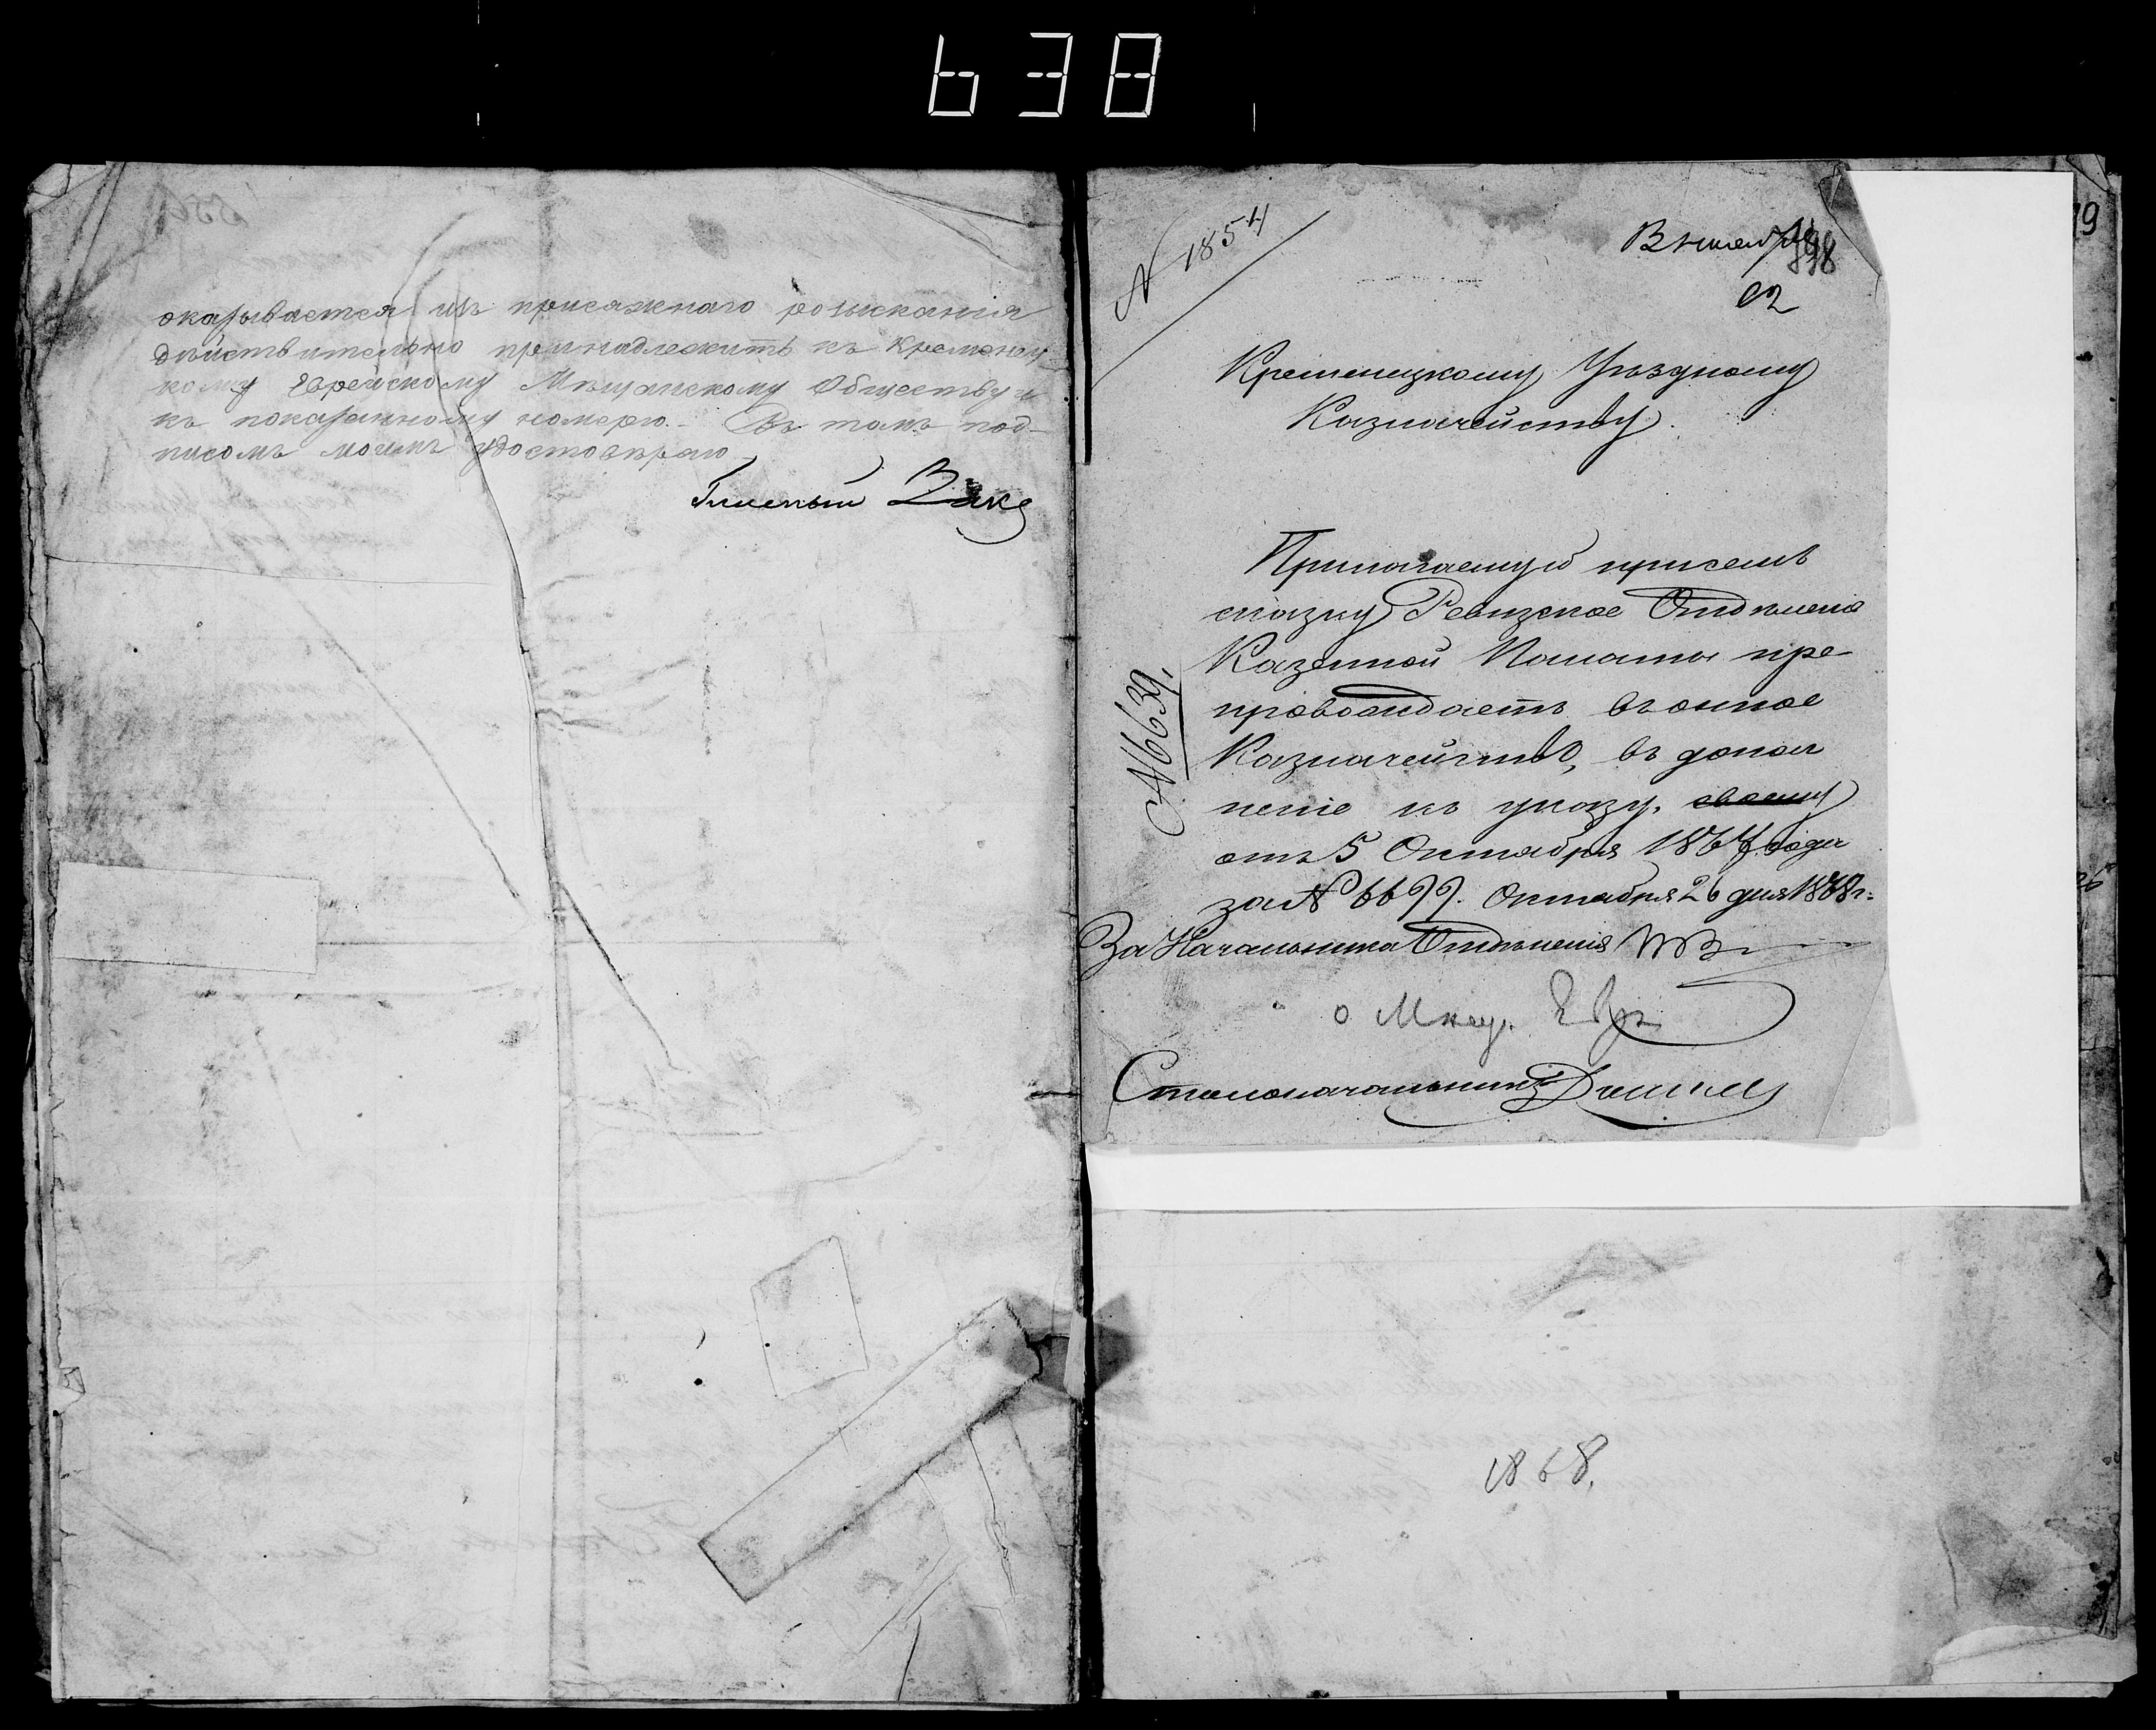 638
оказывается изъ присяжнаго розысканія
дѣйствительно принадлежитъ къ Кременец-
кому Еврейскому Мѣщанскому Обществу и
къ показанному номеру. Въ томъ под-
писомъ моимъ удостовѣряю
Гласный
N 1854
19
898
Кременецкому Уѣздному
Казначейству.
Прилагаемую присемъ
сказку Ревизское Отдѣленіе
Казенной Палаты пре-
провождаетъ въ оное
Казначейство, въ допол
неніе къ указу, своему
отъ 5 Октября 1867 года
за № 6699. Октября 26 дня 1868 г.
№ 6639.
За Начальника Отдѣленія
о
Столоначальникъ
1868.